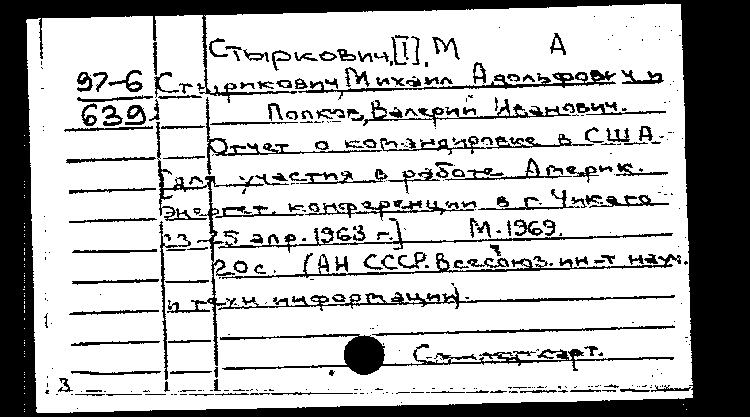 Стыркович,[I], М А
97-6 Стырикович, Михаил Адольфович и
639 Попков, Валерий Иванович.
Отчет о командировке в США
[для участия в работе Америк.
энергет. конференции в г. Чикаго
23-25 апр. 1963 г.] М. 1969.
20 с. (АН СССР. Всесоюз. ин-т науч.
и техн информации).
З